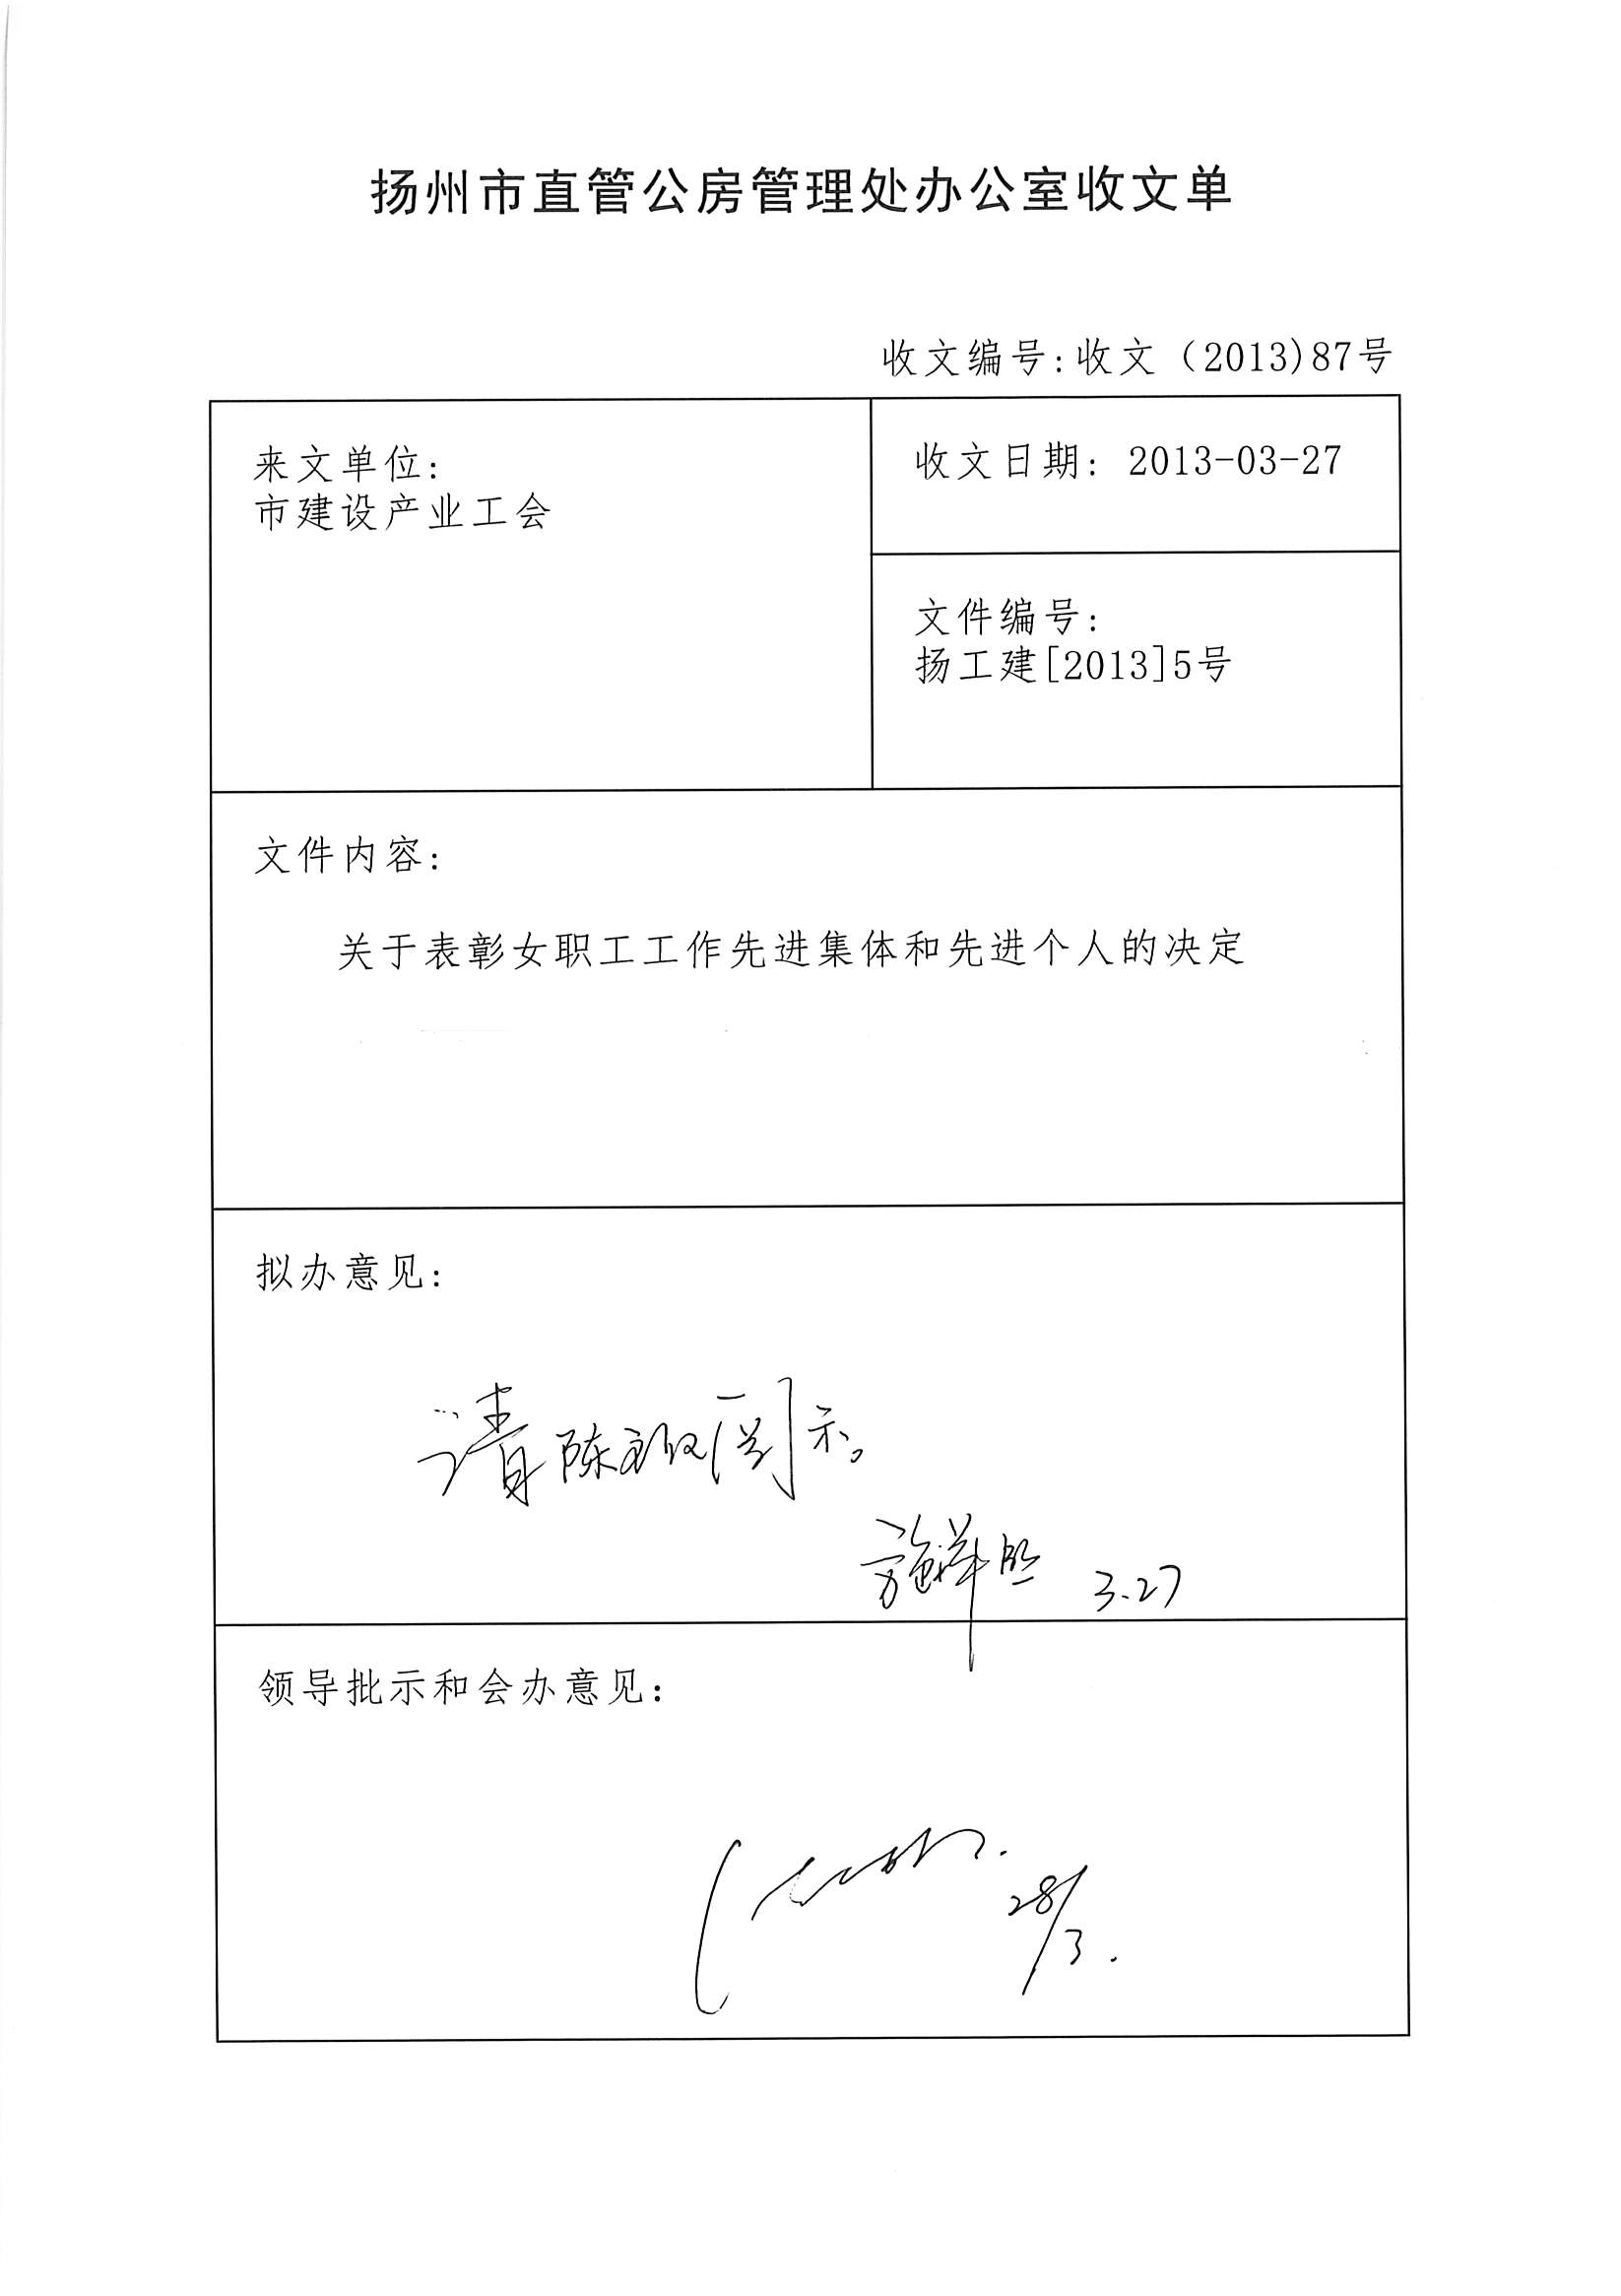 扬州市直管公房管理处办公室收文单
收文编号:收文（2013)87号
来文单位:
市建设产业工会
收文日期: 2013-03-27
文件编号:
扬工建[2013]5号
文件内容:
关于表彰女职工工作先进集体和先进个人的决定
拟办意见:
请陈 阅示。
3.27
领导批示和会办意见:
28/3.